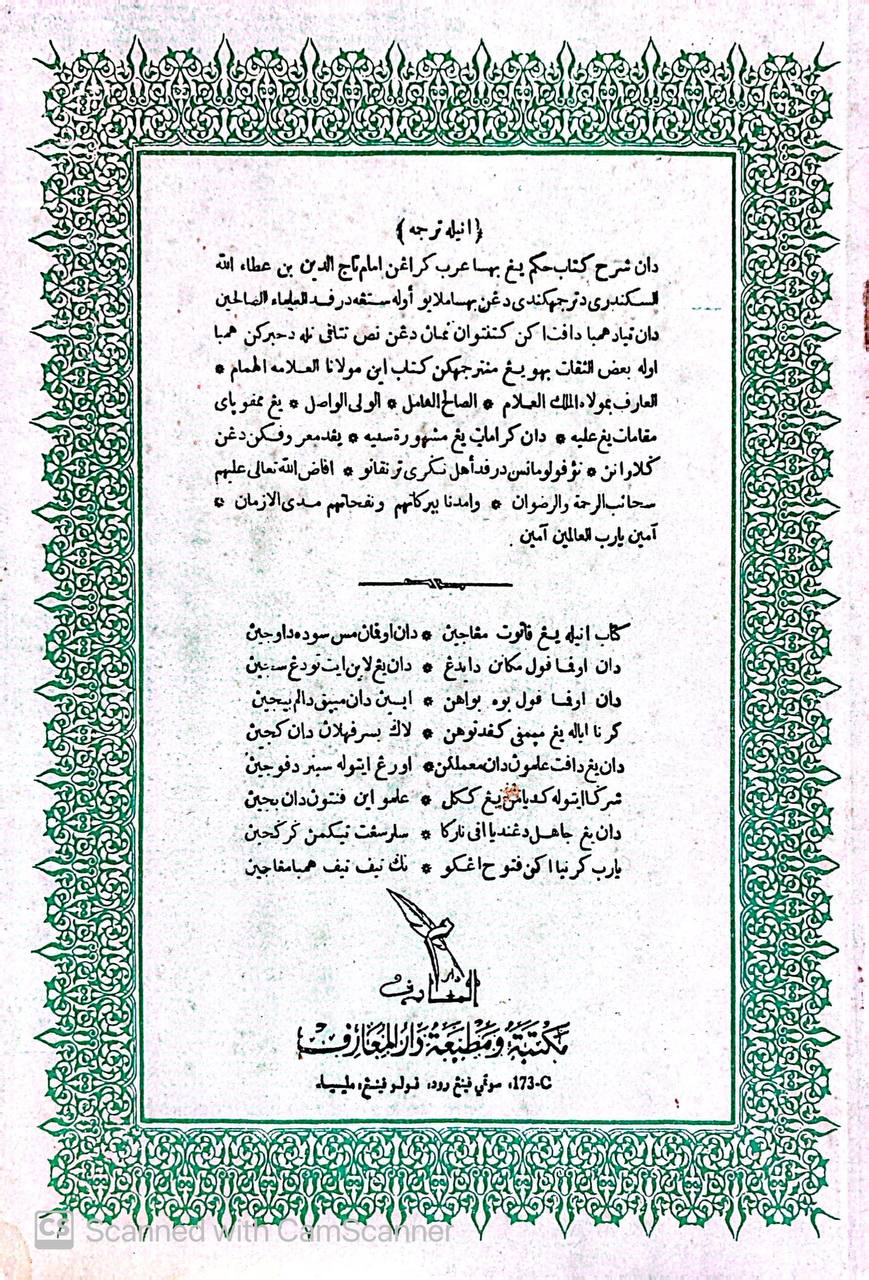 ﴿ انيله ترجمه ﴾
دان شرح كتاب حكم يڠ بهسا عرب كراڠن امام تاج الدين بن عطاء الله
السكندري دترجمهكندي دغن بهسا ملايو أوله ستڠه درفد العلماء الصالحين
دان تياد همبا دافت اكن كتنتوان نمان دغن نص تتافي تله دخبركن همبا
اوله بعض الثقات بهو يڠ منترجمهكن كتاب اين مولانا العلامه الهمام *
العارف بمولاه الملك العلام * الصالح العامل * الولي الواصل * يڠ ممفوياي
مقامات يڠ عليه * دان كرامات يڠ مشهورة سنيه *
* توڤولو مانس درفد أهل نكري ترڠانو * افاض الله تعالى عليهم
سحائب الرحمة والرضوان * وامدنا ببركاتهم ونفحاتهم مدى الازمان *
آمين يارب العالمين آمين
كتاب انيله يڠ فاتوت مڠاجين * دان اوفان مس سوده داوجين
دان اوفما فول مكانن دايدڠ * دان يڠ لاين ايت
دان اوفما فول بوه بواهن * ايسين دان مپق دالم بيجين
كرنا اياله يڠ مپمفي كفد توهن * لاڬ بسر فهلان دان كجين
دان يڠ دافت علمون دان معملكن * اورڠ ايتوله سبنر دفوجين
شركا ايتوله كدياهن يڠ ككل * علمو اين فنتون دان بجين
دان يڠ جاهل دغنديا افي نارك * كركجين
يارب كرنيا اكن فتوح اڠكو * تيف تيف همبا مڠاجين
دار المعارف
مكتبة ومطبعة دار المعارف
173-C، سوڠي فينڠ رود، فولو فينڠ، مليسيا
CS Scanned with CamScanner